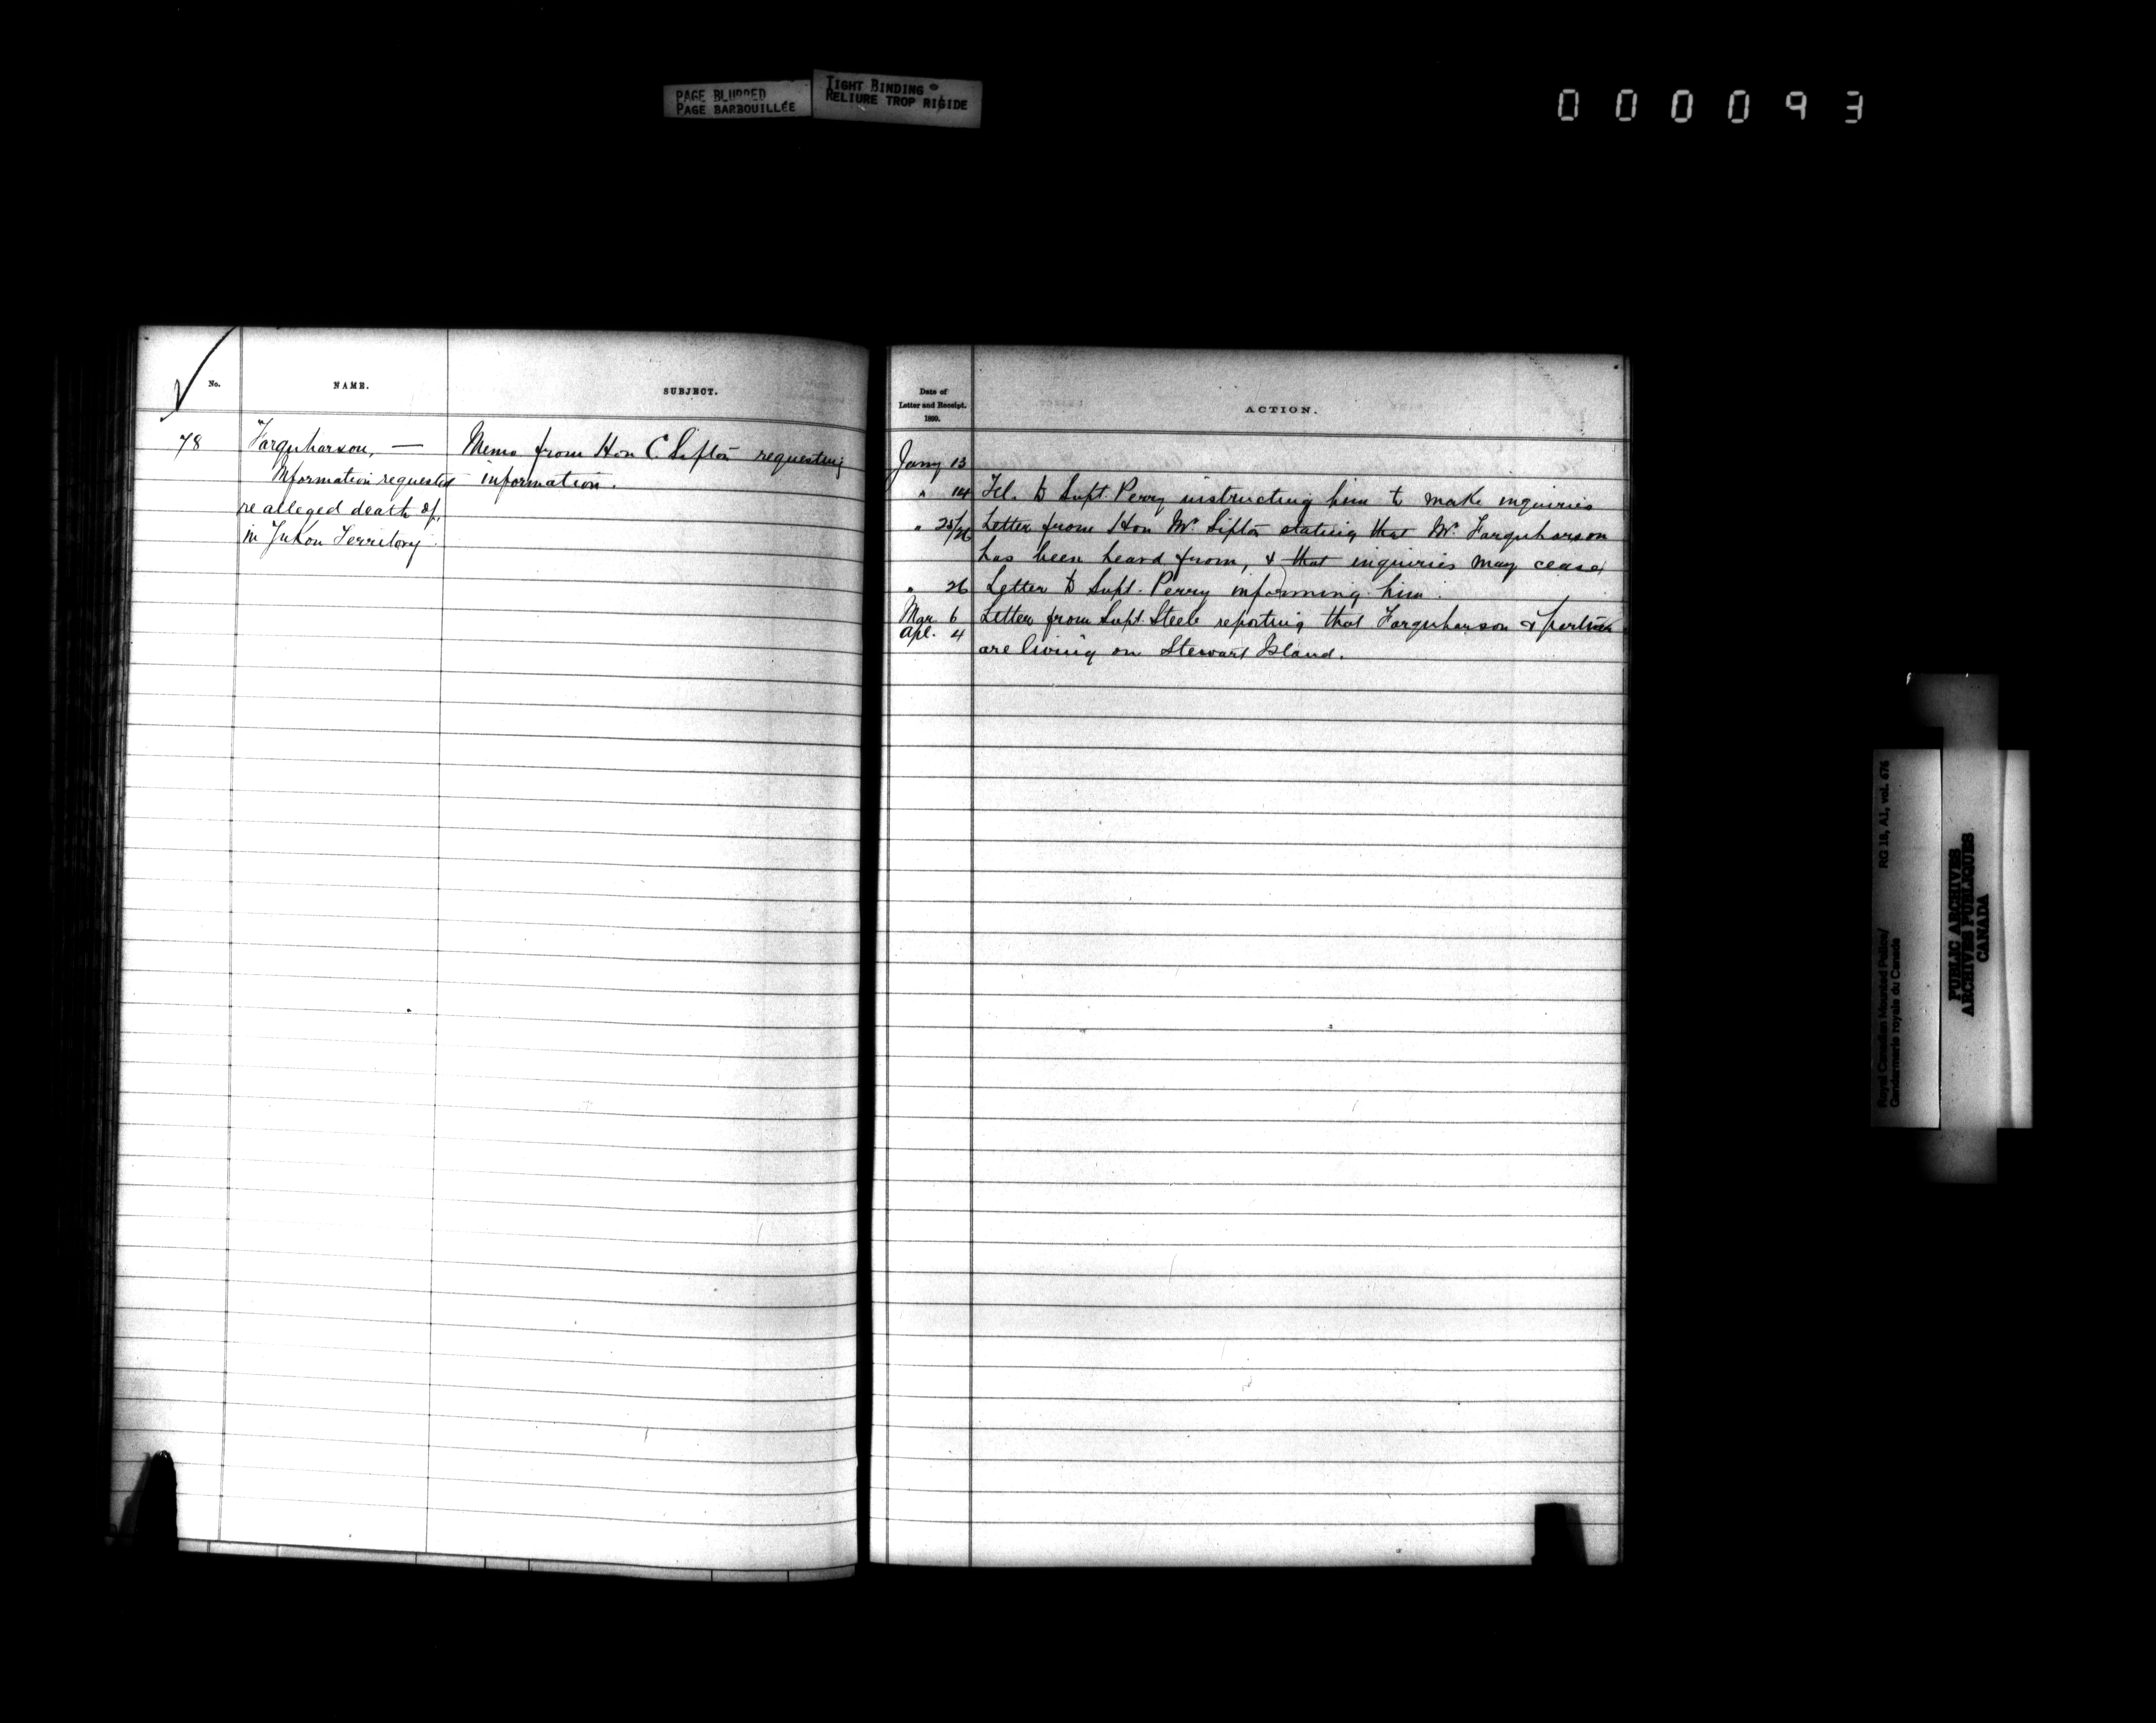 PAGE BLURRED
PAGE BARBOUILLÉE
TIGHT BINDING
RELIURE TROP RIGIDE
000093
No.
NAME.
SUBJECT.
78
Farquharson, —
Information requested
re alleged death of,
in Yukon Territory.
Memo from Hon C. Sifton requesting
information.
Date of
Letter and Receipt.
1899.
ACTION.
Jany 13
" 14 Tel. to Supt. Perry instructing him to make inquiries
" 25/26 Letter from Hon Mr. Sifton stating that Mr. Farquharson
has been heard from, & that inquiries may cease
" 26 Letter to Supt. Perry informing him.
Mar. 6 Letter from Supt. Steele reporting that Farquharson &
Apl. 4
are living on Stewart Island.
Royal Canadian Mounted Police/ RG 18, A1, vol. 676
Gendarmerie royale du Canada
PUBLIC ARCHIVES
ARCHIVES PUBLIQUES
CANADA